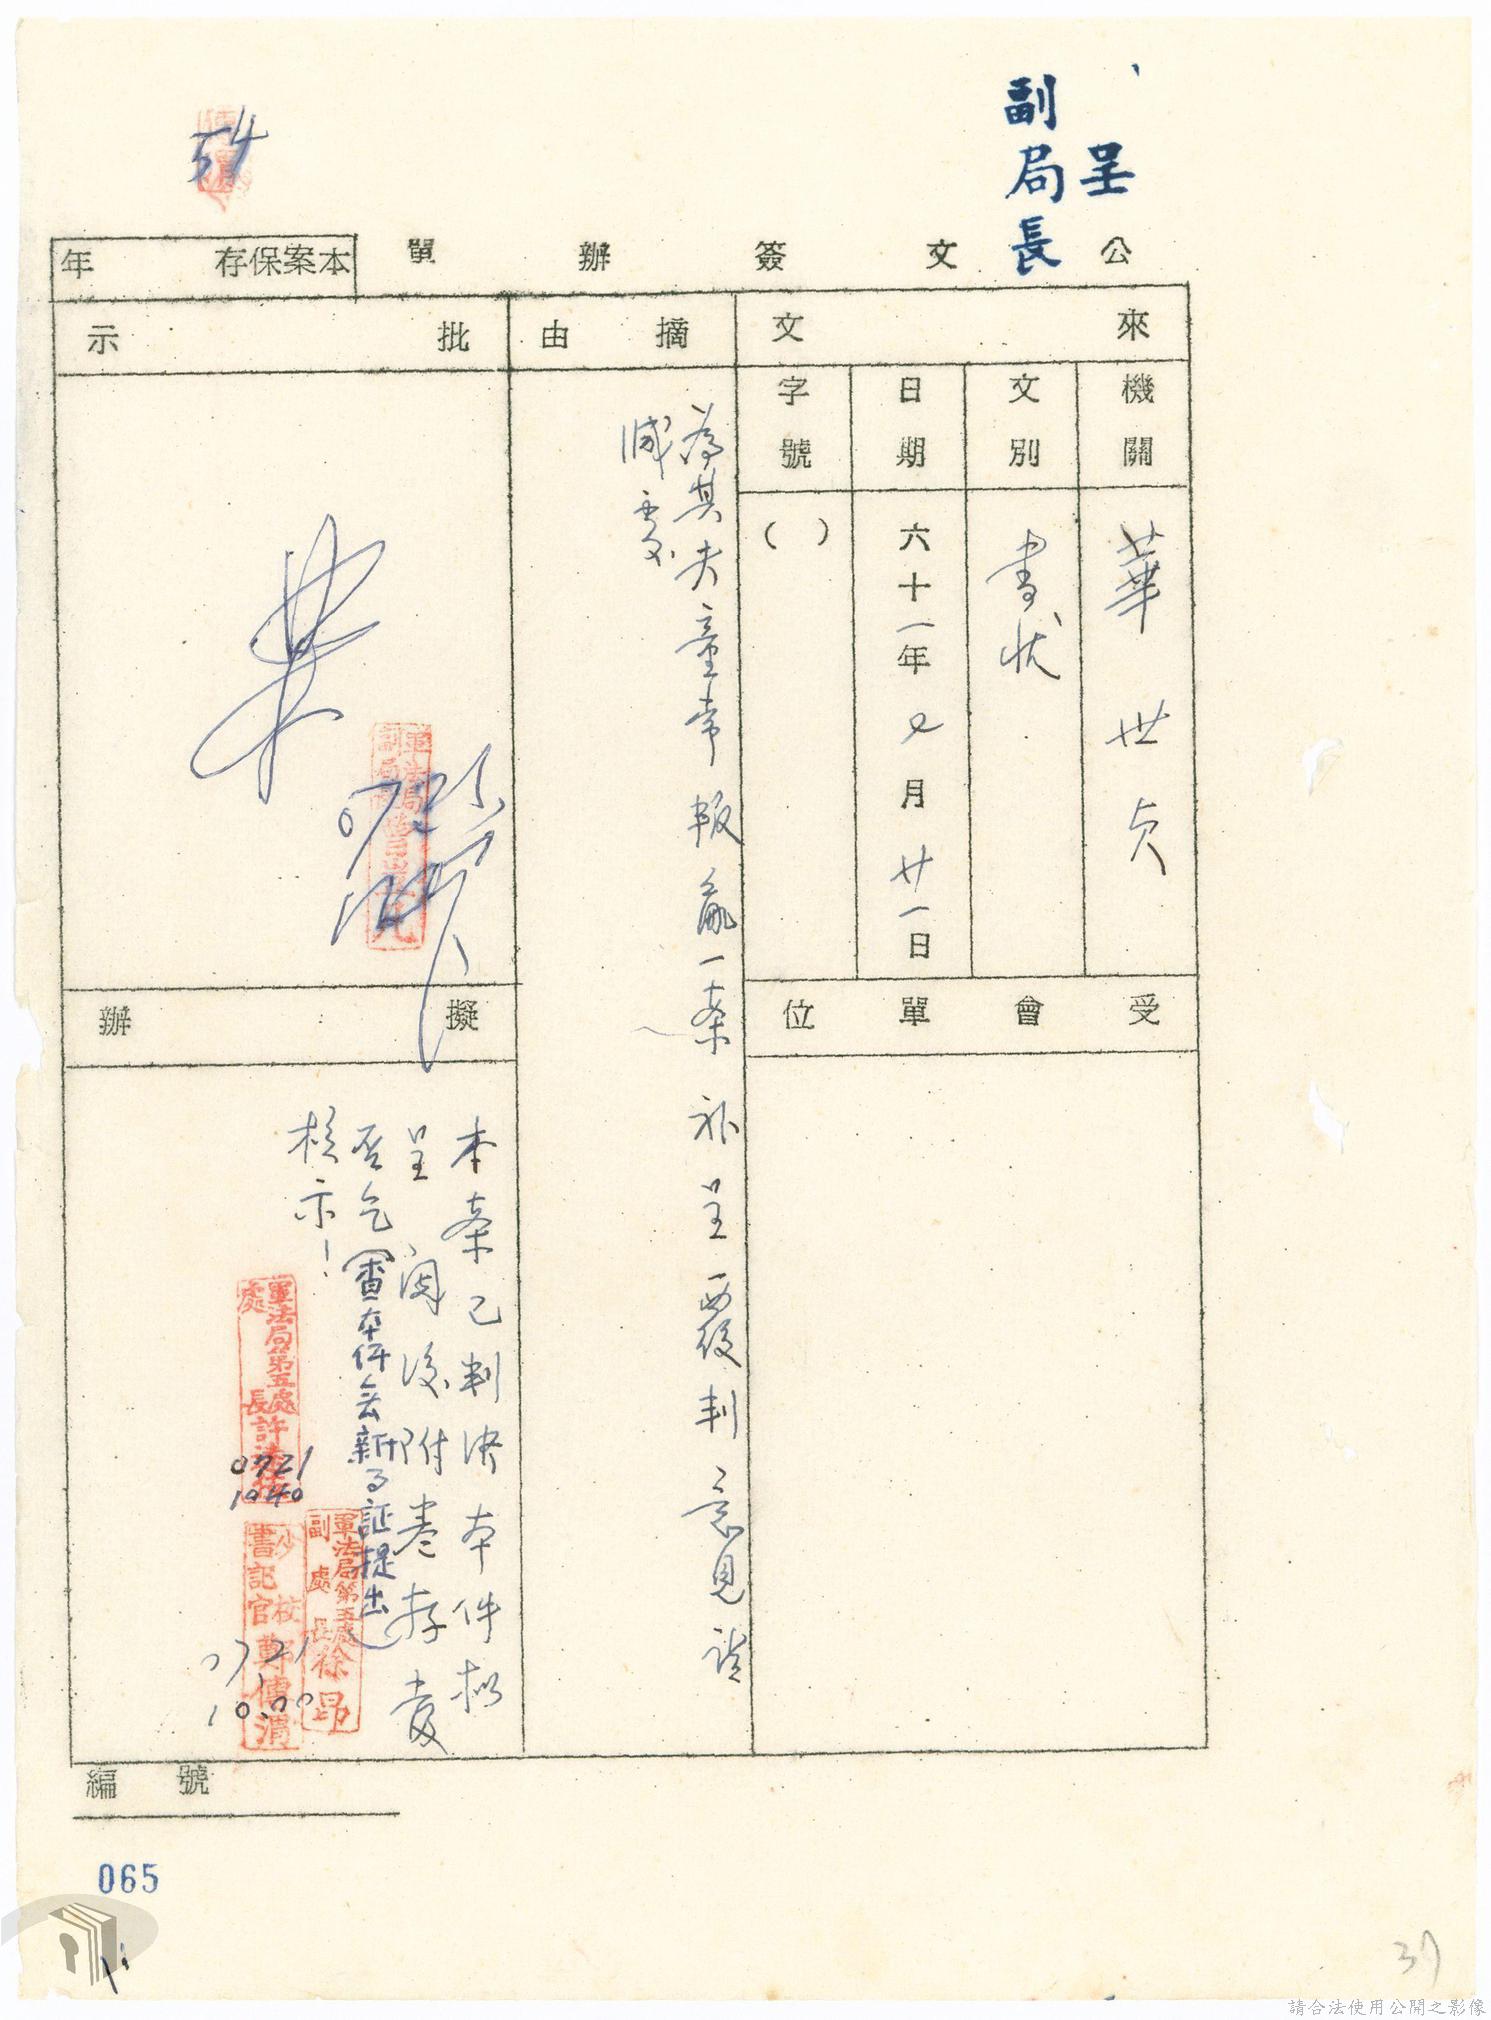 呈
副局長
公文簽辦單
本案保存 年
來文
機關
華世貞
文別
書狀
日期
六十一年 七月 廿一日
字號
( )
受會單位
摘由
為其夫童常叛亂一案補呈要覆判意見請
減處
批示
軍法局
副局長
0725
擬辦
本案已判決本件擬
呈 閱後附卷存查
否乞
(審本件無新事証提出)
核示!
軍法局第五處
處長許
0721
1040
軍法局第五處
副處長徐昂
少校
書記官鄭傳渭
07,21
10.00
編號
065
37
請合法使用公開之影像